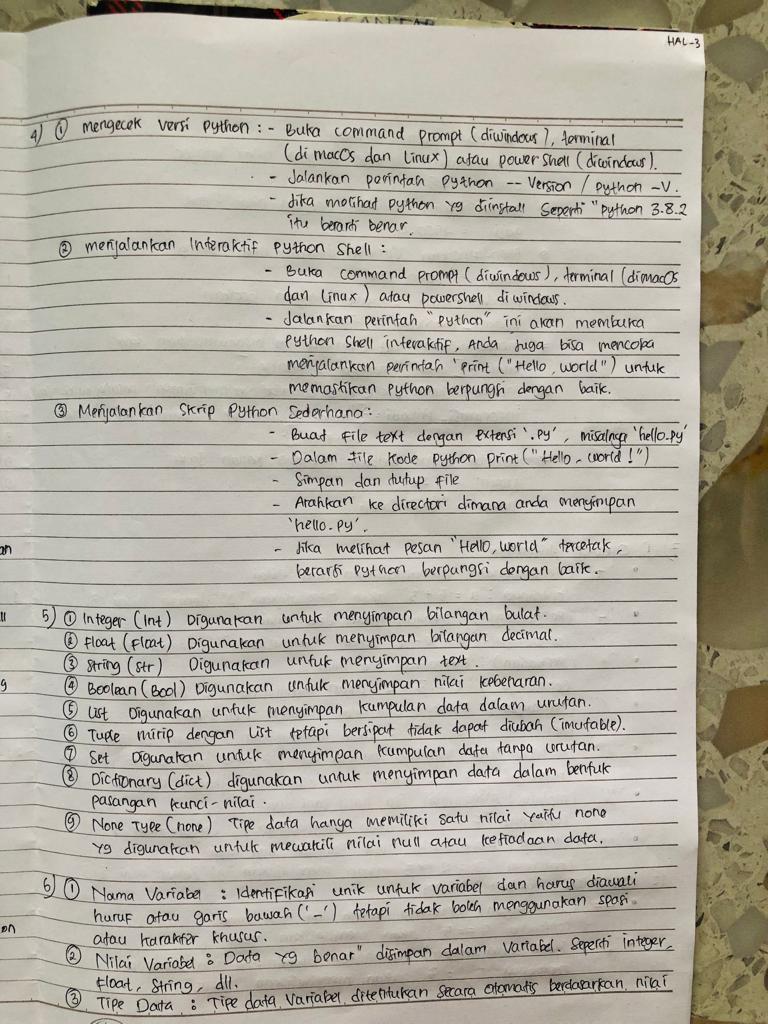 HAL-3
4) ① mengecek versi python : - Buka command prompt (diwindows), terminal
(di macOs dan Linux) atau power shell (diwindows).
- Jalankan perintah python -- Version / python -V.
- Jika melihat python yg diinstall seperti "python 3.8.2
itu berarti benar.
② menjalankan Interaktif python shell :
- Buka command prompt (diwindows), terminal (dimacOs
dan Linux) atau powershell di windows.
- Jalankan perintah "python" ini akan membuka
python shell interaktif, Anda juga bisa mencoba
menjalankan perintah 'print ("Hello, world") untuk
memastikan python berpungsi dengan baik.
③ Menjalankan Skrip Python Sederhana :
- Buat file text dengan extensi '.py', misalnya 'hello.py'
- Dalam file kode python print ("Hello, world!")
- Simpan dan tutup file
- Arahkan ke directori dimana anda menyimpan
'hello.py'.
- Jika melihat pesan "Hello, world" tercetak,
berarti python berpungsi dengan baik.
5) ① Integer (Int) Digunakan untuk menyimpan bilangan bulat.
② Float (Float) Digunakan untuk menyimpan bilangan decimal.
③ String (str) Digunakan untuk menyimpan text.
④ Boolean (Bool) Digunakan untuk menyimpan nilai kebenaran.
⑤ List Digunakan untuk menyimpan kumpulan data dalam urutan.
⑥ Tuple mirip dengan List tetapi bersipat tidak dapat diubah (imutable).
⑦ Set Digunakan untuk menyimpan kumpulan data tanpa urutan.
⑧ Dictionary (dict) digunakan untuk menyimpan data dalam bentuk
pasangan kunci-nilai.
⑨ None Type (none) Tipe data hanya memiliki satu nilai yaitu none
yg digunakan untuk mewakili nilai null atau ketiadaan data.
6) ① Nama Variabel : Identifikasi unik untuk variabel dan harus diawali
huruf atau garis bawah ('_') tetapi tidak boleh menggunakan spasi
atau karakter khusus.
② Nilai Variabel : Data yg benar" disimpan dalam variabel. Seperti integer,
float, string, dll.
③ Tipe Data : Tipe data Variabel ditentukan secara otomatis berdasarkan nilai